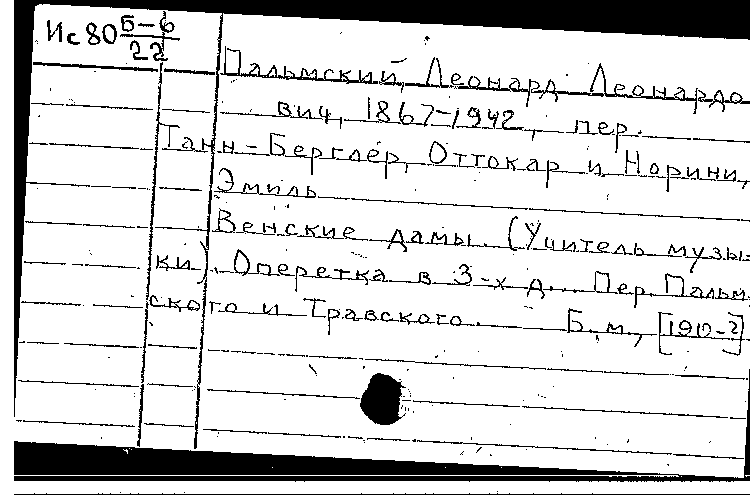 Ис80 Б-6/22
Пальмский, Леонард Леонардо
вич, 1867-1942, пер.
Танн-Берглер, Оттокар и Норини,
Эмиль
Венские дамы. (Учитель музы-
ки). Оперетка в 3-х д... Пер. Пальм
ского и Травского. — Б. м., [190-?]